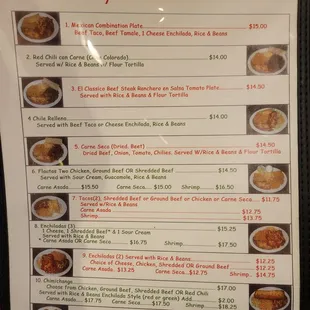 1. Mexican Combination Plate $15.00
Beef Taco, Beef Tamale, 1 Cheese Enchilada, Rice & Beans
2. Red Chili con Carne Colorado) $14.00
Served w/ Rice & Beans w/ Flour Tortilla
3. El Classico Beef Steak Ranchero en Salsa Tomato Plate $14.50
Served with Rice & Beans & Flour Tortilla
4 Chile Relleno $14.00
Served with Beef Taco or Cheese Enchilada, Rice & Beans
5. Carne Seca (Dried, Beef) $14.50
Dried Beef, Onion, Tomato, Chilies. Served W/Rice & Beans & Flour Tortilla
6. Flautas Two Chicken, Ground Beef OR Shredded Beef $14.50
Served with Sour Cream, Guacamole, Rice & Beans
Carne Asada $15.50 Carne Seca $15.00 Shrimp $16.50
7. Tacos(2), Shredded Beef or Ground Beef or Chicken or Carne Seca $11.75
Served w/Rice & Beans
Carne Asada $12.75
Shrimp $13.75
8. Enchiladas (3) $15.25
1 Cheese, 1 Shredded Beef* & 1 Sour Cream
Served with Rice & Beans
* Carne Asada OR Carne Seca $16.75 Shrimp $17.50
9. Enchiladas (2) Served with Rice & Beans $12.25
Choice of Cheese, Chicken, Shredded OR Ground Beef $12.25
Carne Asada $13.25 Carne Seca $12.75 Shrimp $14.75
10. Chimichanga $17.00
Choice from Chicken, Ground Beef, Shredded Beef OR Red Chili
Served with Rice & Beans Enchilada Style (red or green) Add $2.00
Carne Asada $17.75 Carne Seca $17.50 Shrimp $18.25